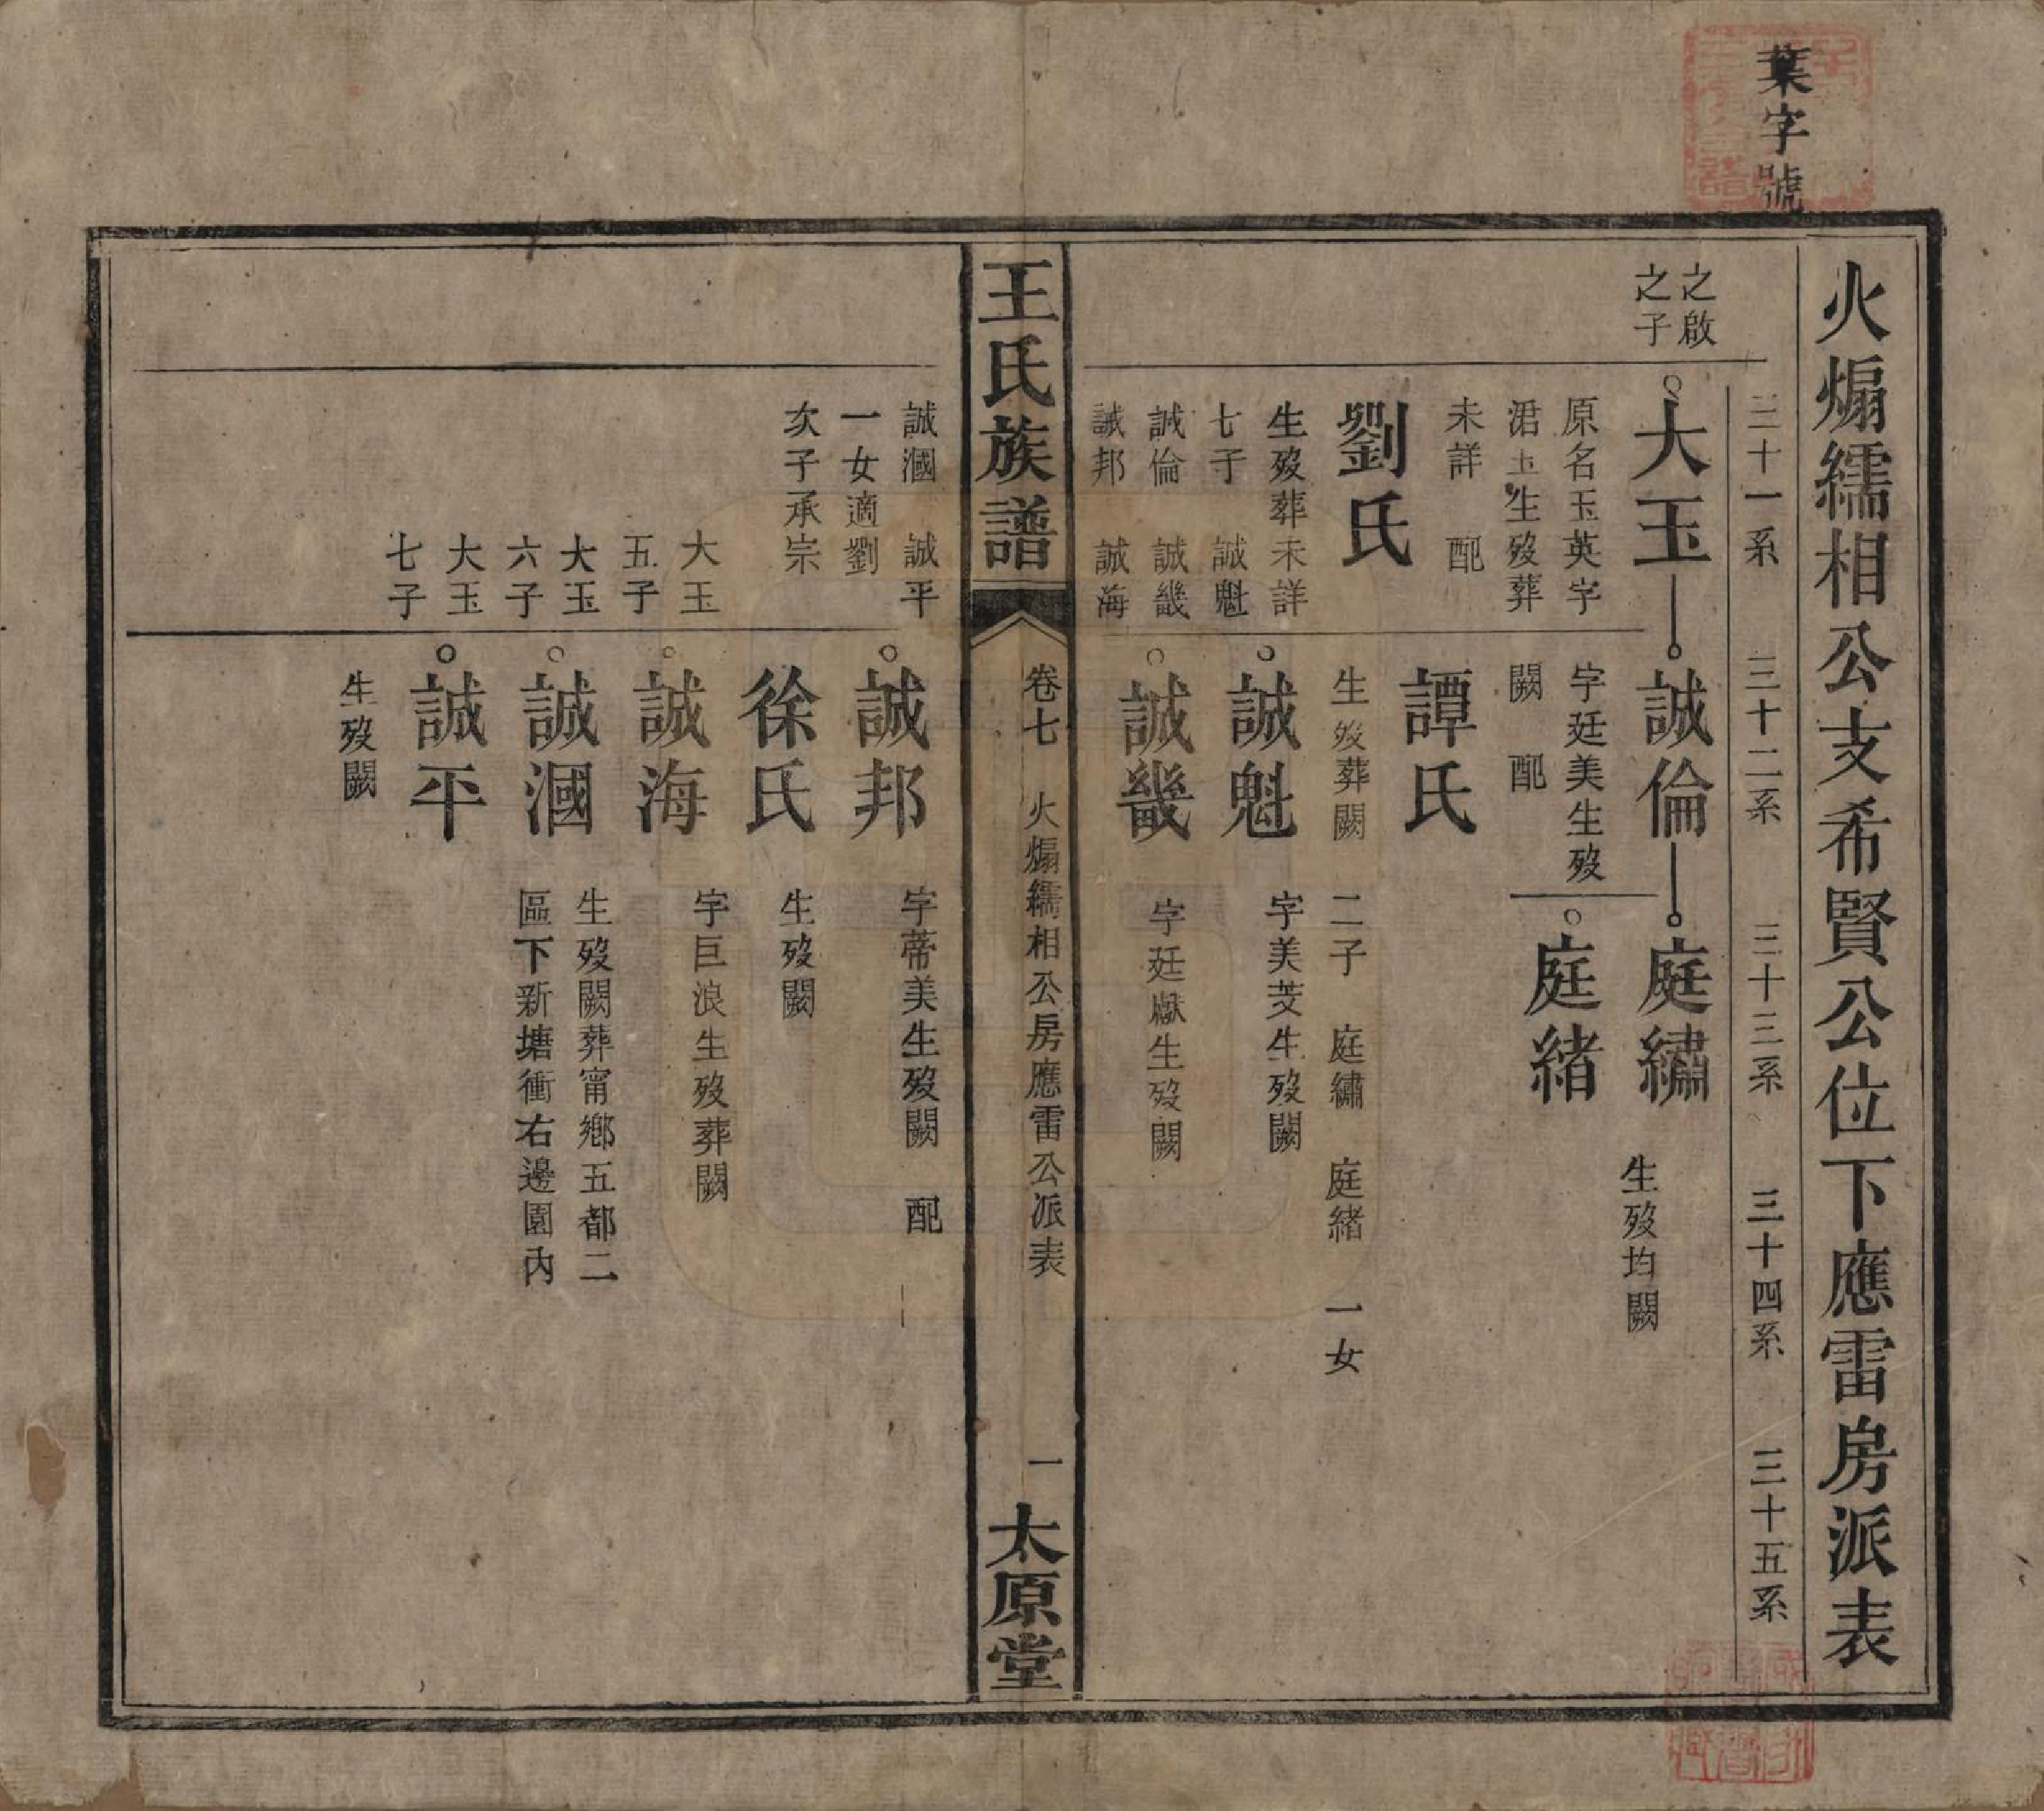 葉字號
火煽繻相公支希賢公位下應雷房派表
三十一系　三十二系　三十三系　三十四系　三十五系
之啟
之子
大玉
原名玉英字
涒玉生歿葬
未詳　配
劉氏
生歿葬未詳
七子　誠魁
誠倫　誠畿
誠邦　誠海
誠倫
字廷美生歿
闕　配
譚氏
生歿葬闕　二子　庭繡　庭緒　一女
庭繡
庭緒
生歿均闕
誠魁
字美芠生歿闕
誠畿
字廷獻生歿闕
王氏族譜
卷七　火煽繻相公房應雷公派表
一
太原堂
誠漍　誠平
一女適劉
次子承宗
誠邦
字蒂美生歿闕　配
徐氏
生歿闕
大玉
五子
誠海
字巨浪生歿葬闕
大玉
六子
誠漍
生歿闕葬甯鄉五都二
區下新塘衝右邊園內
大玉
七子
誠平
生歿闕